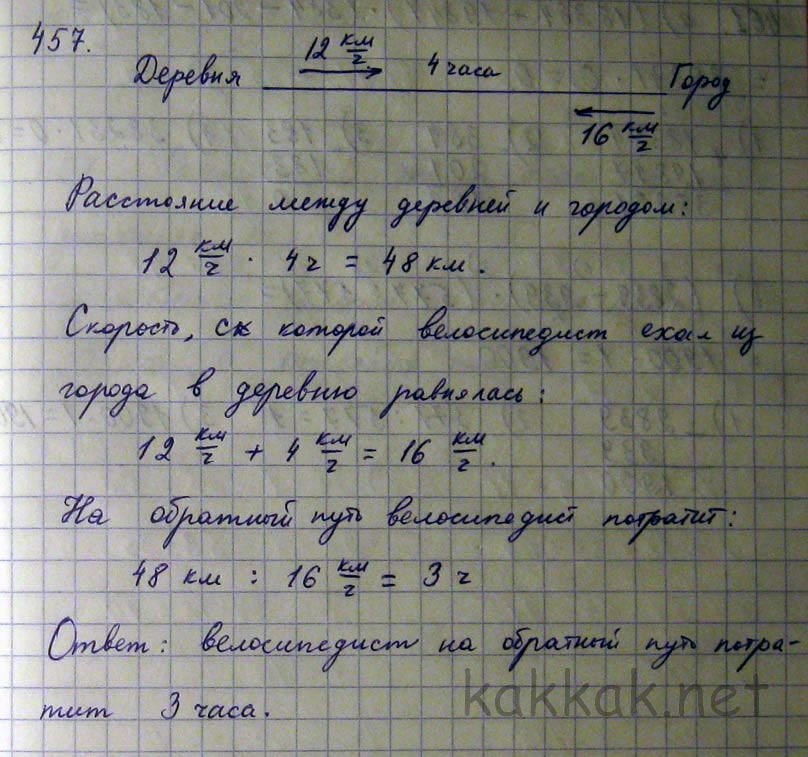 457.
12 км/ч
Деревня 4 часа Город
16 км/ч
Расстояние между деревней и городом:
12 км/ч · 4 ч = 48 км.
Скорость, с которой велосипедист ехал из
города в деревню равнялась:
12 км/ч + 4 км/ч = 16 км/ч.
На обратный путь велосипедист потратит:
48 км : 16 км/ч = 3 ч
Ответ: велосипедист на обратный путь потра-
тит 3 часа.
kakkak.net